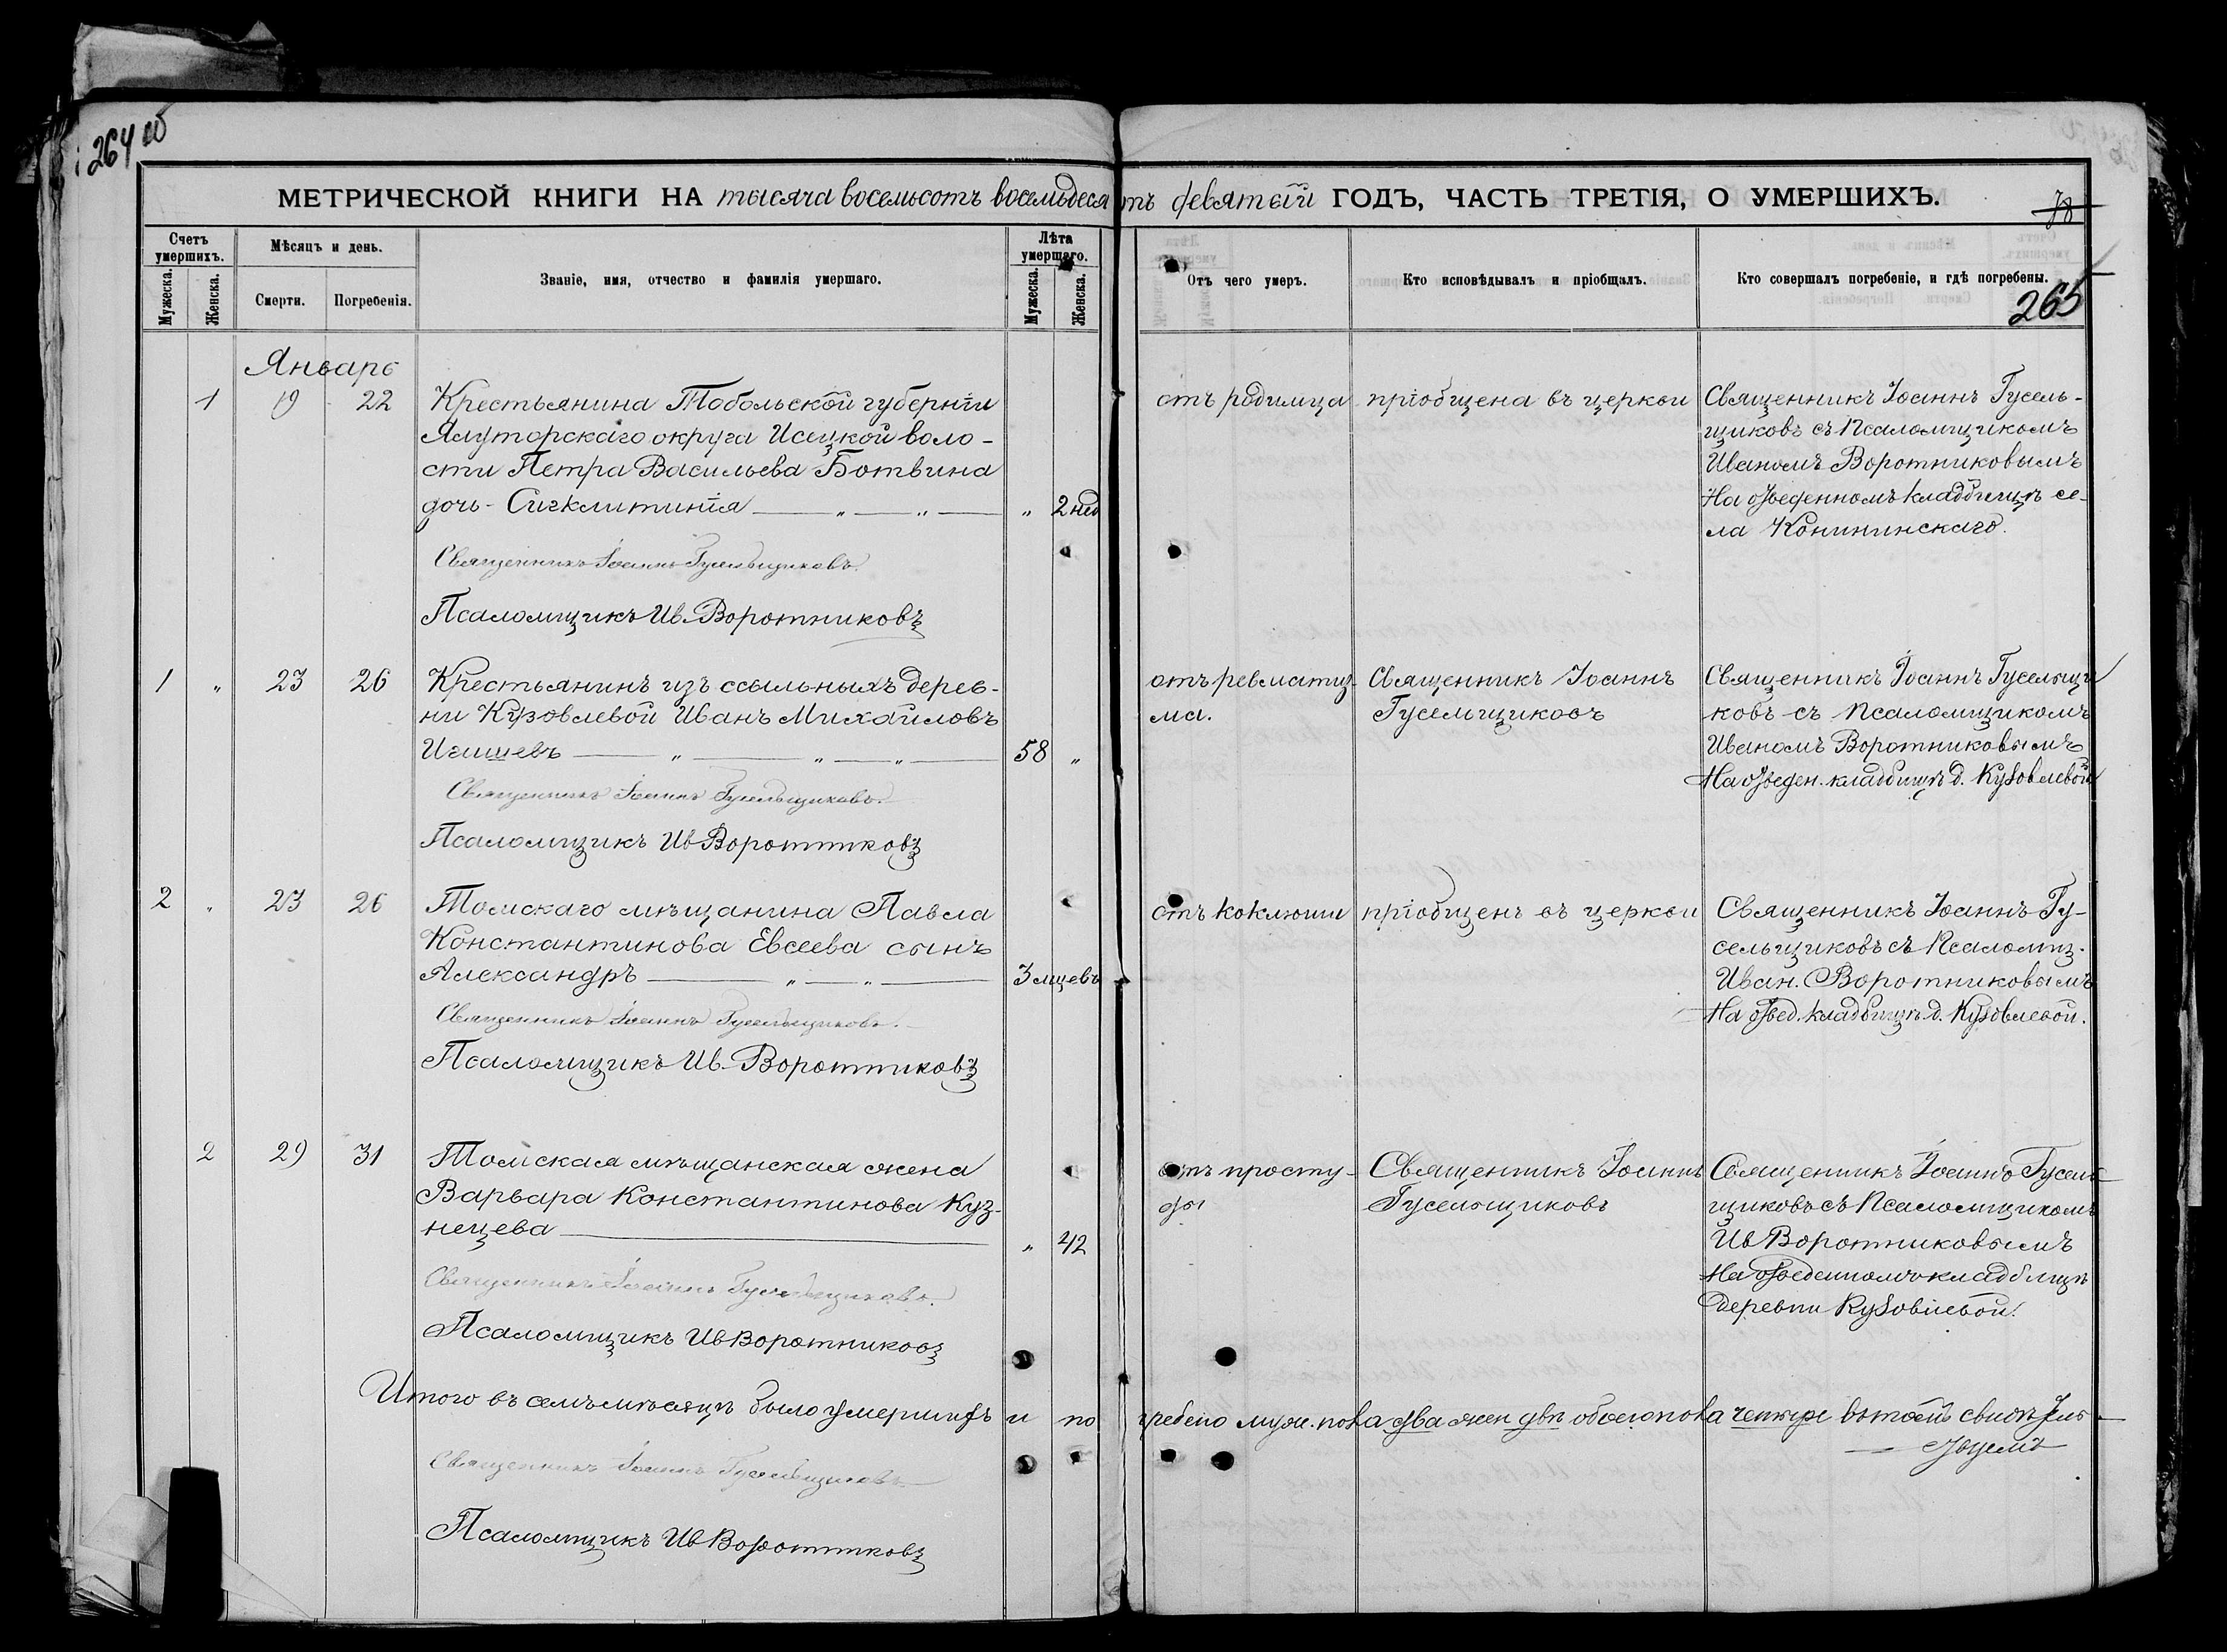 264 об
МЕТРИЧЕСКОЙ КНИГИ НА тысяча восемьсотъ восемьдесятъ девятый ГОДЪ, ЧАСТЬ ТРЕТІЯ, О УМЕРШИХЪ.
78
Счетъ умершихъ.
Мужеска.
Женска.
Мѣсяцъ и день.
Смерти.
Погребенія.
Званіе, имя, отчество и фамилія умершаго.
Лѣта умершаго.
Мужеска.
Женска.
Отъ чего умеръ.
Кто исповѣдывалъ и пріобщалъ.
Кто совершалъ погребеніе, и гдѣ погребены.
265
Январь
1 19 22
Крестьянина Тобольской губерніи
Ялуторскаго округа Исецкой воло-
сти Петра Васильева Ботвина
дочь - Сигклитинія — „ — „ — „ 2 нед
отъ родимца
пріобщена въ церкви
Священникъ Іоаннъ Гусель-
щиковъ съ Псаломщикомъ
Иваномъ Воротниковымъ
На отведенномъ кладбищѣ се-
ла Конининскаго.
Священникъ Іоаннъ Гусельщиковъ.
Псаломщикъ Ив. Воротниковъ
1 „ 23 26
Крестьянинъ изъ ссыльныхъ дерев-
ни Кузовлевой Иванъ Михайловъ
Игишевъ — „ — „ — „ — 58 „
отъ ревматиз-
ма.
Священникъ Іоаннъ
Гусельщиковъ
Священникъ Іоаннъ Гусельщи
ковъ съ Псаломщикомъ
Иваномъ Воротниковымъ
На отведен. кладбищѣ д. Кузовлевой
Священникъ Іоаннъ Гусельщиковъ.
Псаломщикъ Ив Воротниковъ
2 „ 23 26
Томскаго мѣщанина Павла
Константинова Евсеева сынъ
Александръ — „ — „ — 3 мцевъ
отъ коклюши
пріобщенъ въ церкви
Священникъ Іоаннъ Гу-
сельщиковъ съ Псаломщ.
Иван. Воротниковымъ
На отвед. кладбищѣ д. Кузовлевой.
Священникъ Іоаннъ Гусельщиковъ.
Псаломщикъ Ив. Воротниковъ
2 29 31
Томская мѣщанская жена
Варвара Константинова Куз-
нецева — „ 42
отъ просту-
ды
Священникъ Іоаннъ
Гусельщиковъ
Священникъ Іоаннъ Гусель
щиковъ съ Псаломщикомъ
Ив Воротниковымъ
На отведенномъ кладбищѣ
деревни Кузовлевой.
Священникъ Іоаннъ Гусельщиковъ.
Псаломщикъ Ив Воротниковъ
Итого въ семъ мѣсяцѣ было умершихъ и погребено муж. пола два жен двѣ обоего пола четыре
Священникъ Іоаннъ Гусельщиковъ
Псаломщикъ Ив Воротниковъ